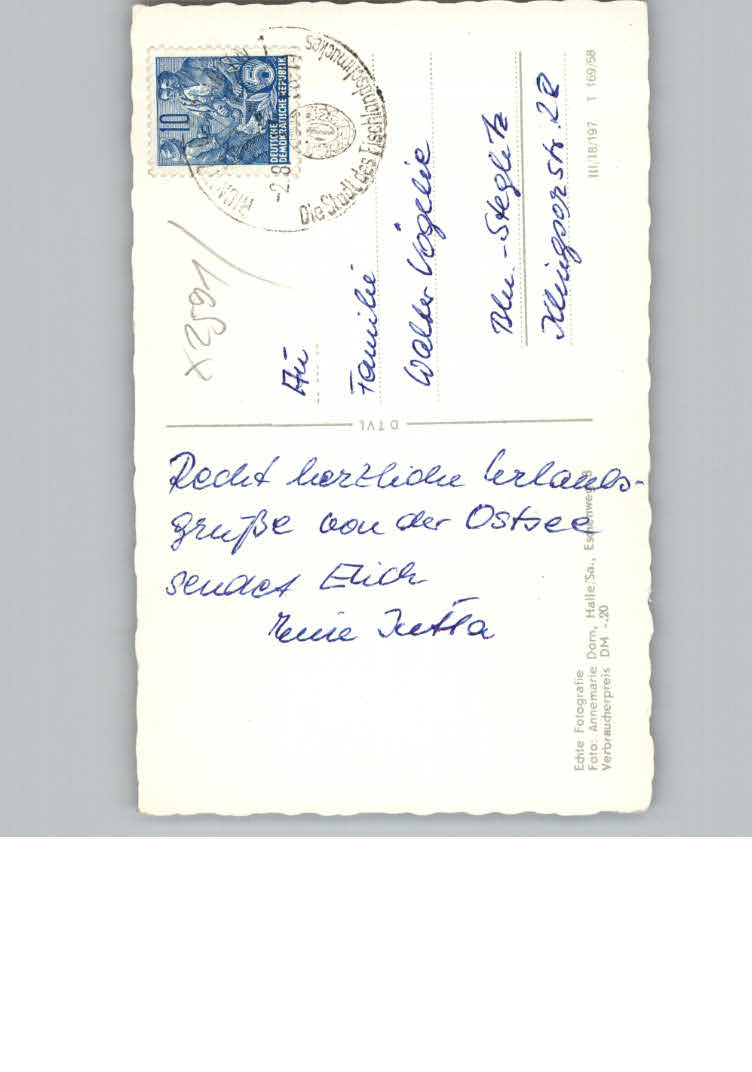 Recht herzliche Urlaubs-
grüße von der Ostsee
sendet Euch
Eure Jutta
An
Familie
Walter Vögelie
Bln.-Steglitz
Klingsorstr. 22
x 2591
10
5
DEUTSCHE
DEMOKRATISCHE REPUBLIK
-2.8
Die Stadt des Fischlandschmuckes
DTVL
III/18/197 T 169/58
Echte Fotografie
Foto: Annemarie Dorn, Halle/Sa., Eschenweg 8
Verbraucherpreis DM -.20